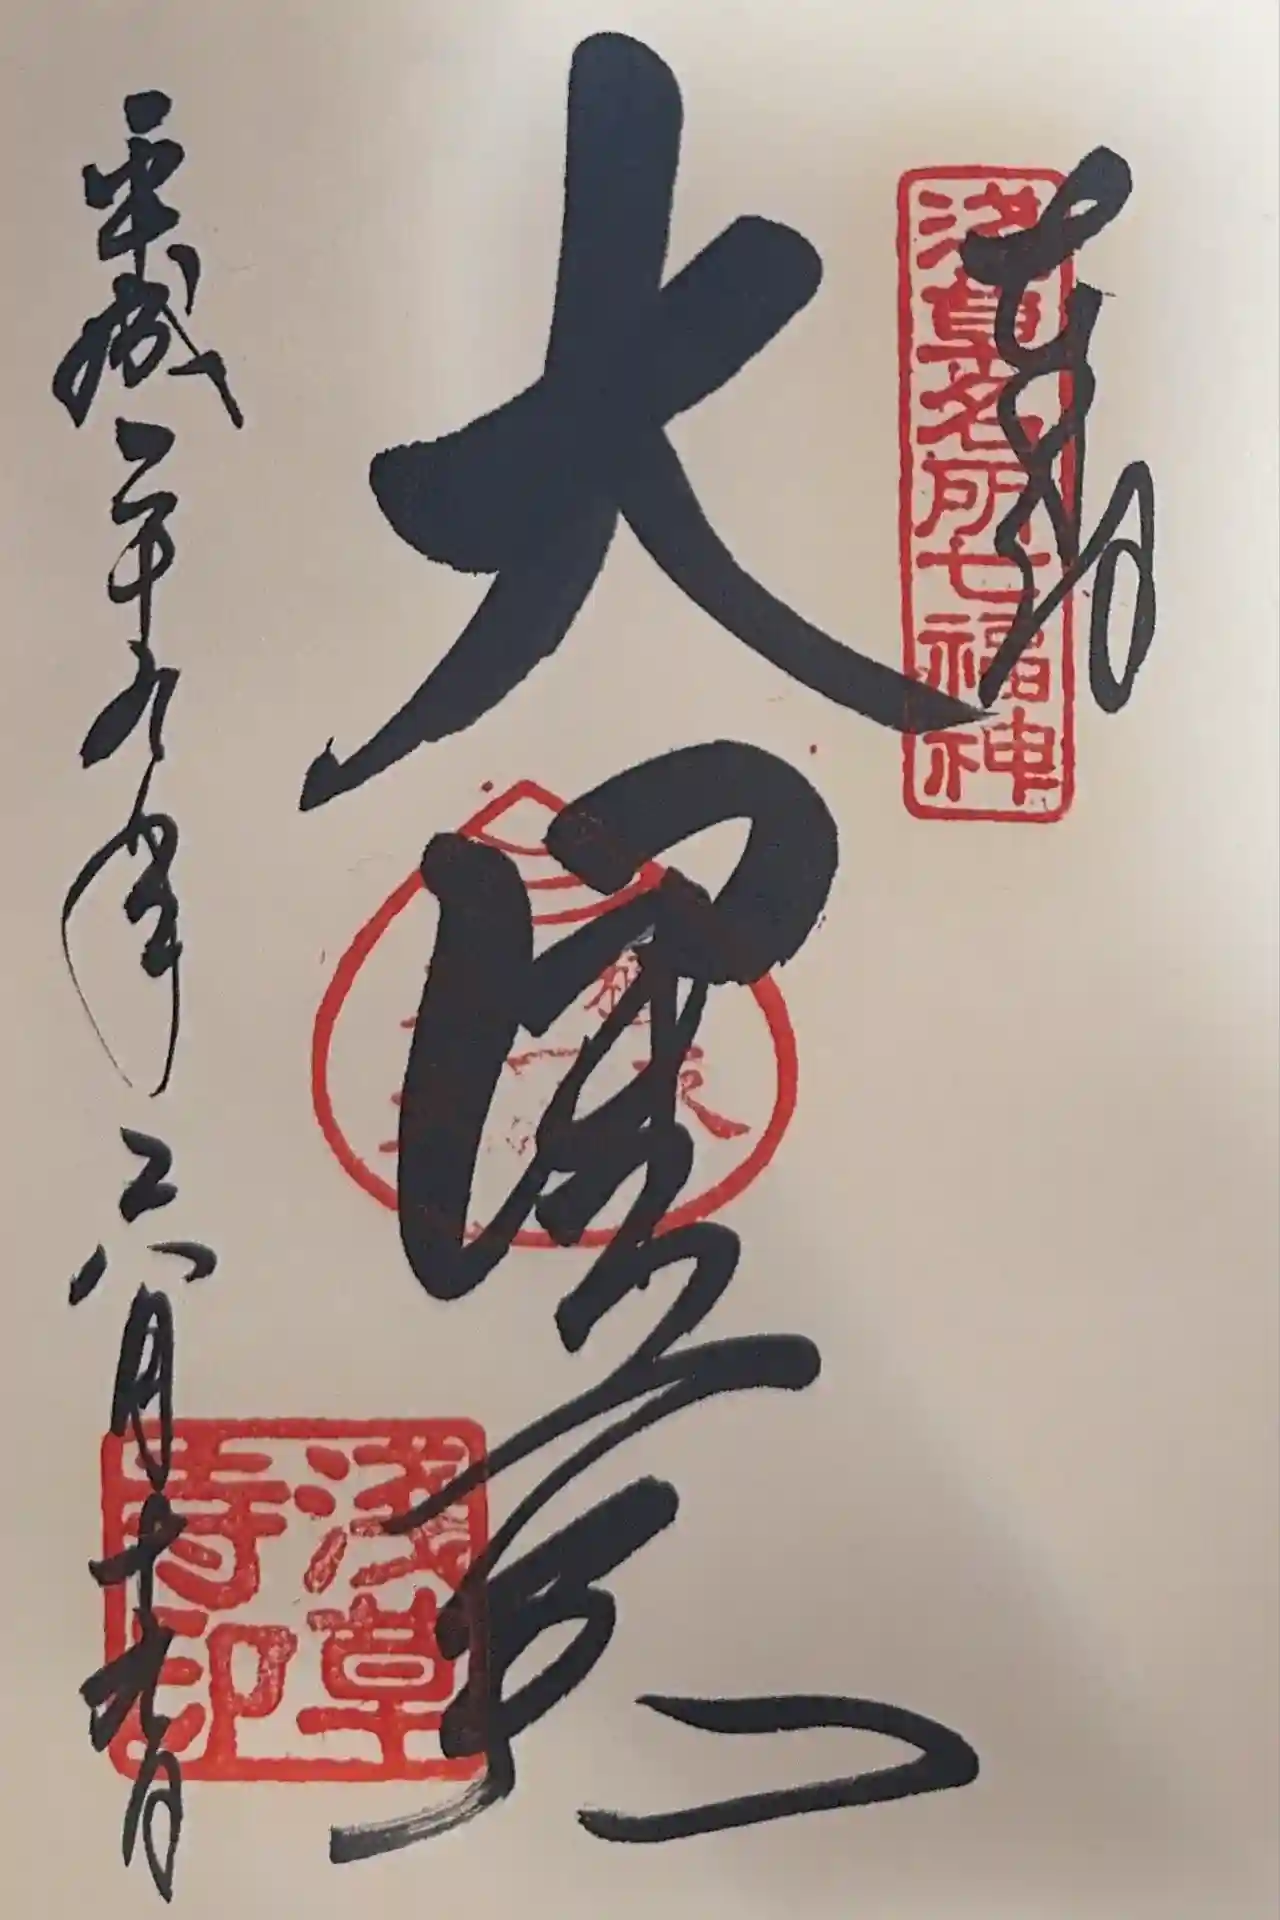 奉拝
淺草名所七福神
大黒天
平成二十九年六月十九日
淺草寺印